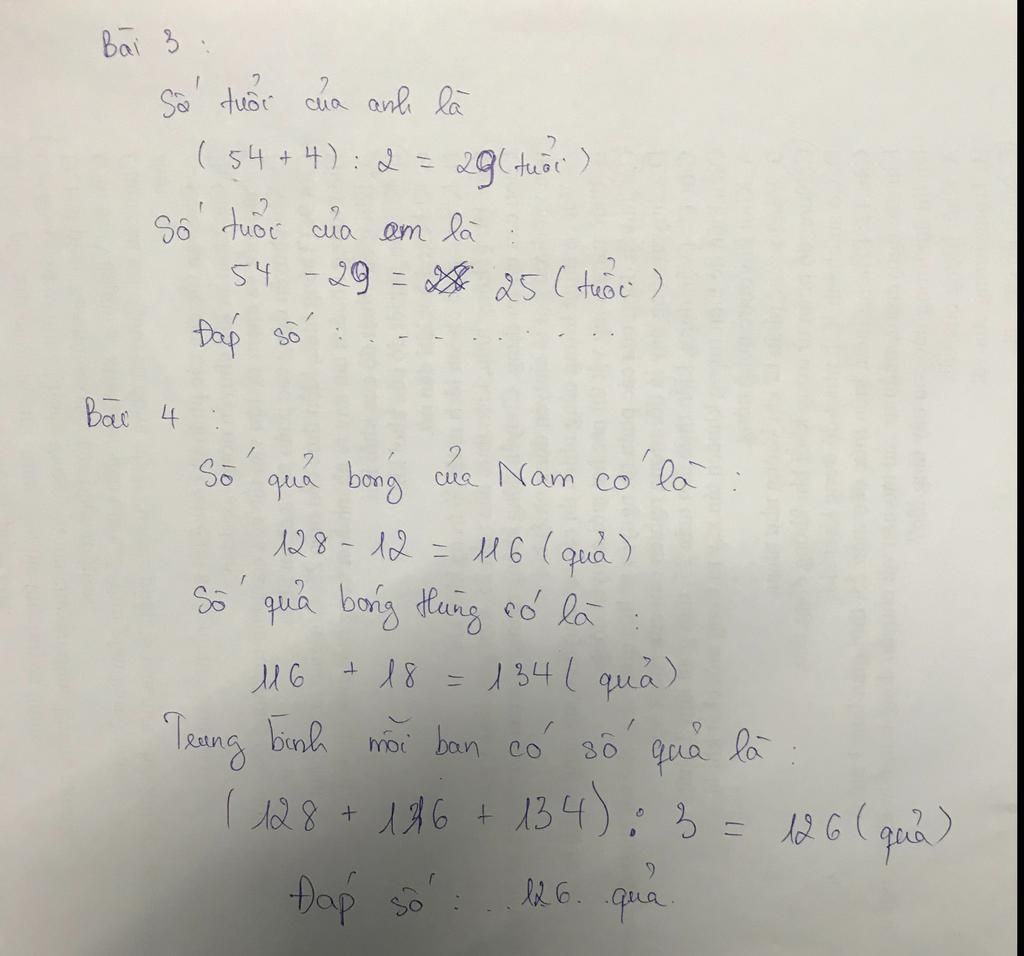 Bài 3 :
Số tuổi của anh là
( 54 + 4 ) : 2 = 29 (tuổi)
Số tuổi của em là :
54 - 29 = 25 ( tuổi )
Đáp số : . - - . . . . . .
Bài 4 :
Số quả bóng của Nam có là :
128 - 12 = 116 ( quả )
Số quả bóng Hùng có là :
116 + 18 = 134 ( quả )
Trung bình mỗi bạn có số quả là :
( 128 + 116 + 134 ) : 3 = 126 ( quả )
Đáp số : . . 126 . . quả .